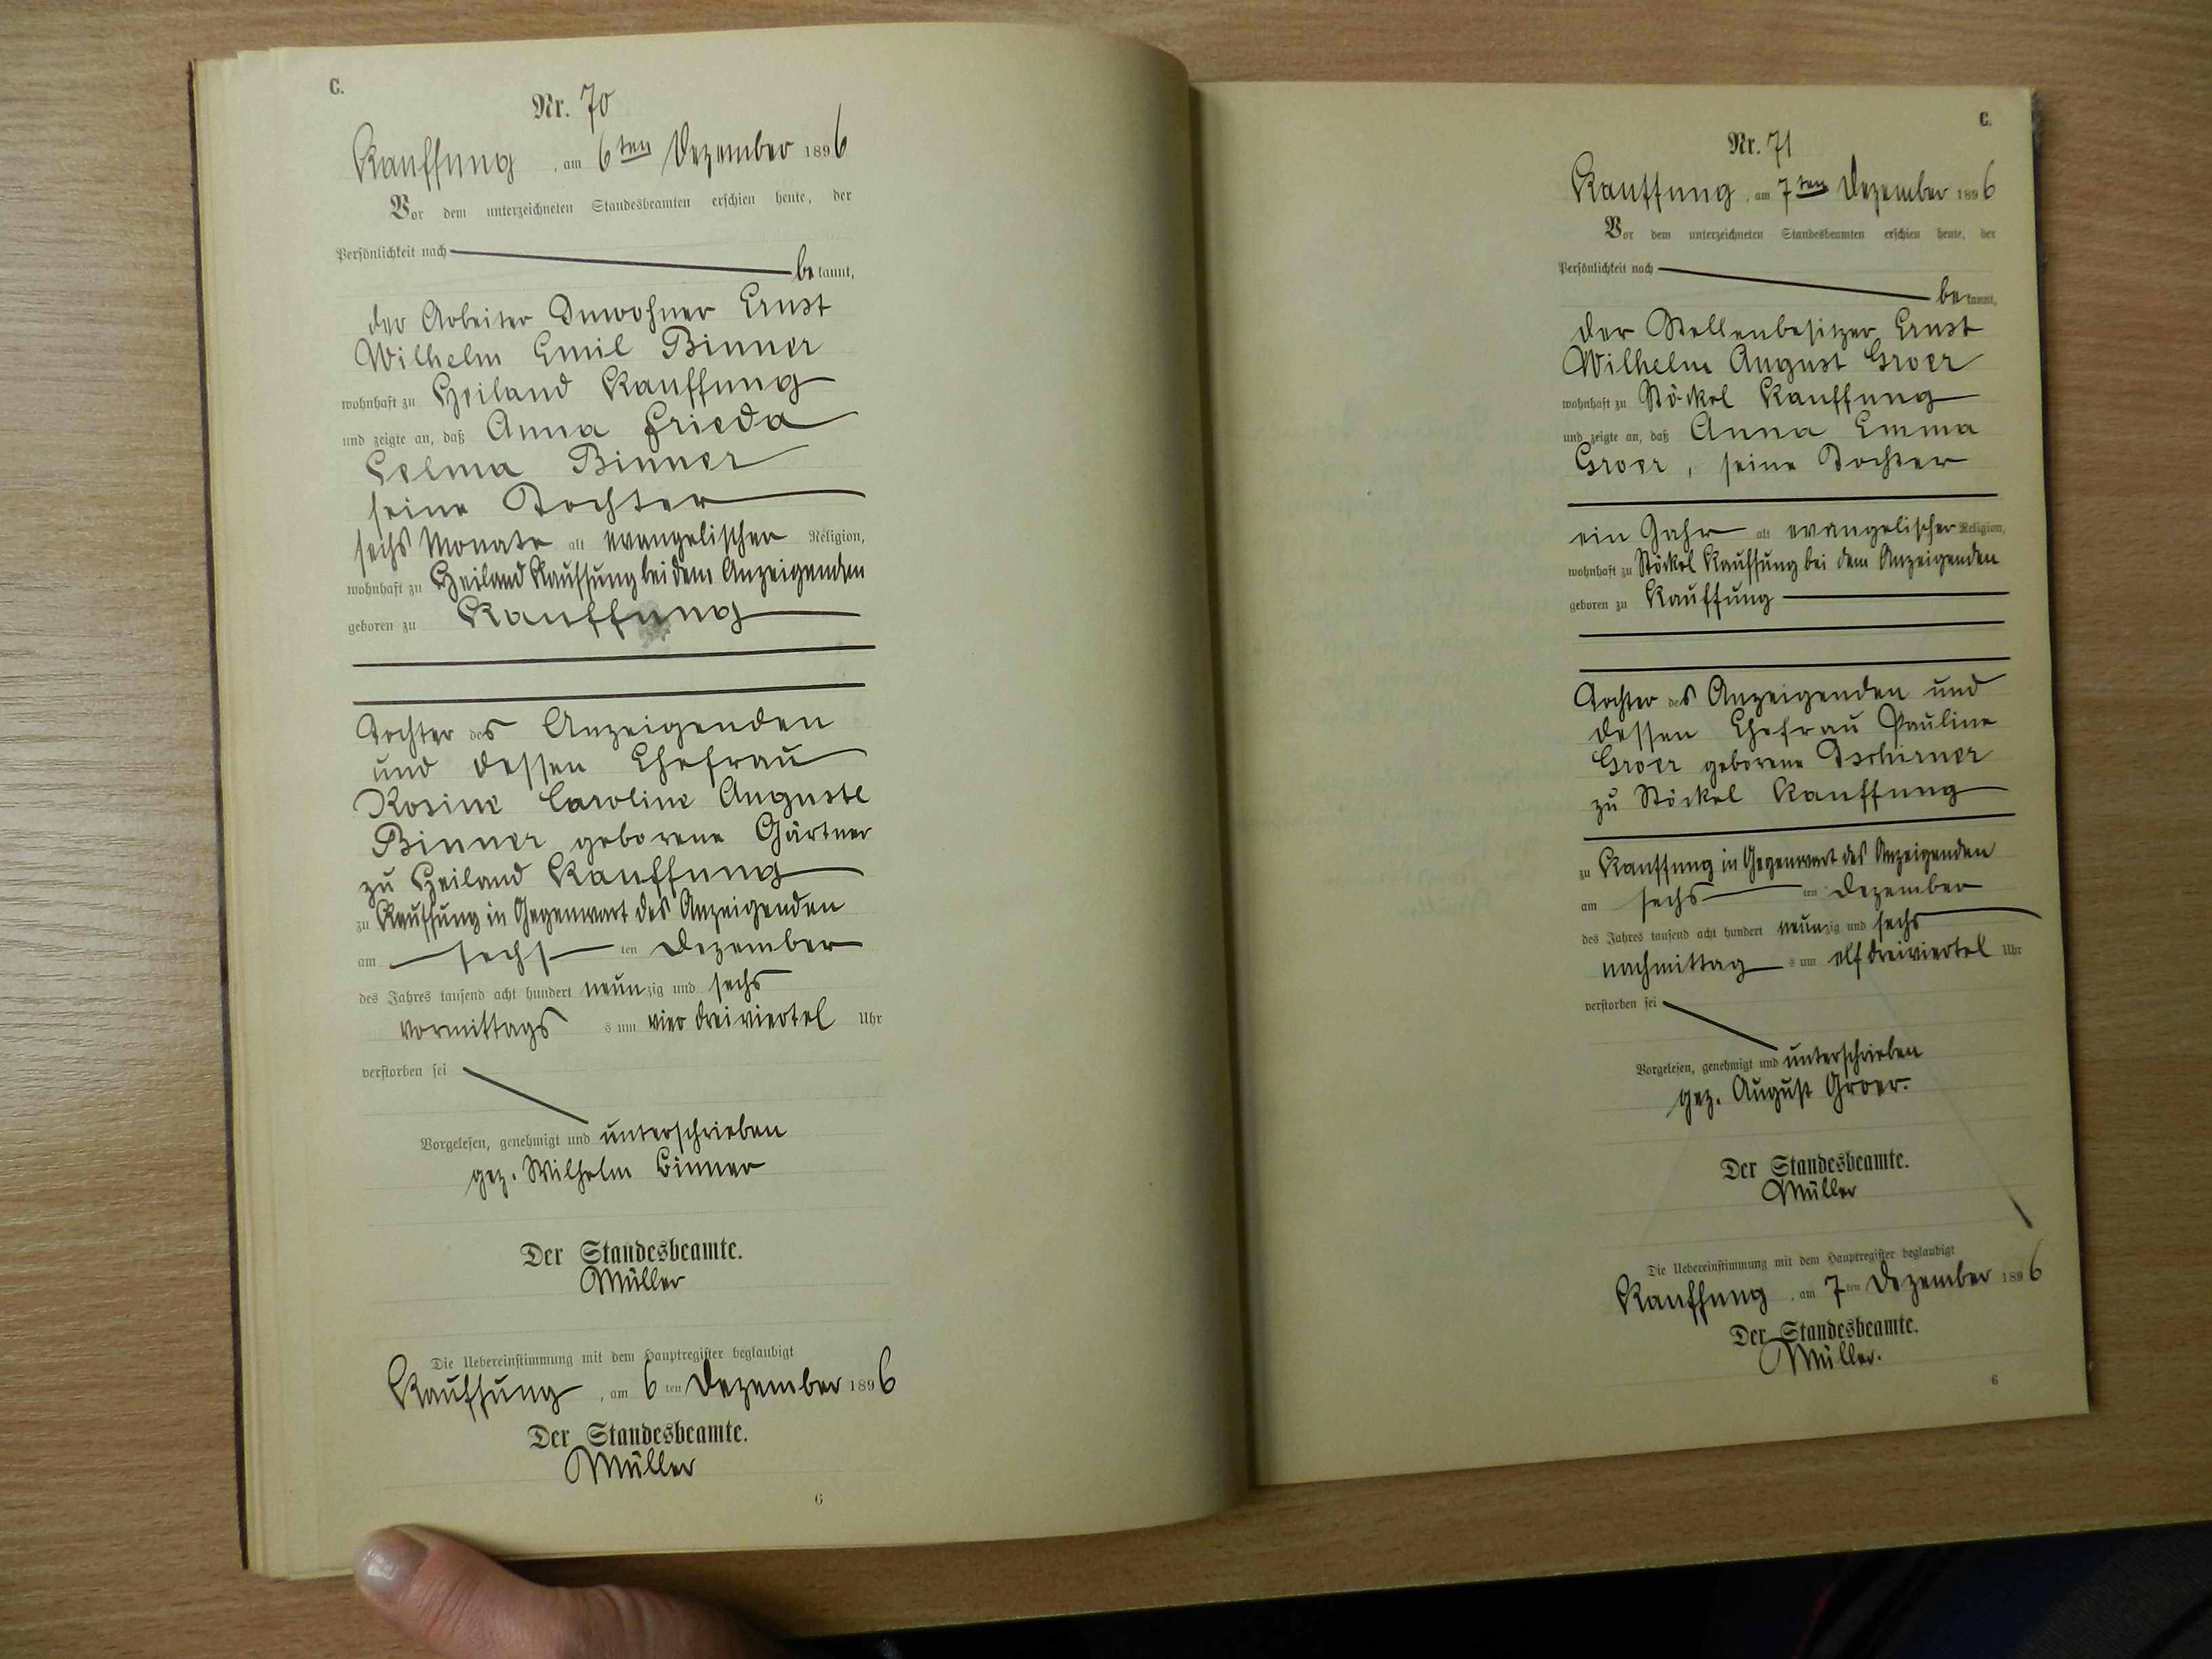 C.
Nr. 70
Kauffung, am 6ten Dezember 1896
Vor dem unterzeichneten Standesbeamten erschien heute, der
Persönlichkeit nach
bekannt,
der Arbeiter Inwohner Ernst
Wilhelm Emil Binner
wohnhaft zu Heiland Kauffung
und zeigte an, daß Anna Frieda
Selma Binner
seine Tochter
sechs Monate alt evangelischen Religion,
wohnhaft zu Heiland Kauffung bei dem Anzeigenden
geboren zu Kauffung
Tochter des Anzeigenden
und dessen Ehefrau
Rosine Caroline Auguste
Binner geborene Gärtner
zu Heiland Kauffung
zu Kauffung in Gegenwart des Anzeigenden
am sechsten Dezember
des Jahres tausend acht hundert neunzig und sechs
vormittags s um vier dreiviertel Uhr
verstorben sei
Vorgelesen, genehmigt und unterschrieben
gez. Wilhelm Binner
Der Standesbeamte.
Müller
Die Uebereinstimmung mit dem Hauptregister beglaubigt
Kauffung, am 6ten Dezember 1896
Der Standesbeamte.
Müller
6
C.
Nr. 71
Kauffung, am 7ten Dezember 1896
Vor dem unterzeichneten Standesbeamten erschien heute, der
Persönlichkeit nach
bekannt,
der Stellenbesitzer Ernst
Wilhelm August Groer
wohnhaft zu Stöckel Kauffung
und zeigte an, daß Anna Emma
Groer, seine Tochter
ein Jahr alt evangelischer Religion,
wohnhaft zu Stöckel Kauffung bei dem Anzeigenden
geboren zu Kauffung
Tochter des Anzeigenden und
dessen Ehefrau Pauline
Groer geborene Tschirner
zu Stöckel Kauffung
zu Kauffung in Gegenwart des Anzeigenden
am sechsten Dezember
des Jahres tausend acht hundert neunzig und sechs
nachmittags um elf dreiviertel Uhr
verstorben sei
Vorgelesen, genehmigt und unterschrieben
gez. August Groer.
Der Standesbeamte.
Müller
Die Uebereinstimmung mit dem Hauptregister beglaubigt
Kauffung, am 7ten Dezember 1896
Der Standesbeamte.
Müller.
6